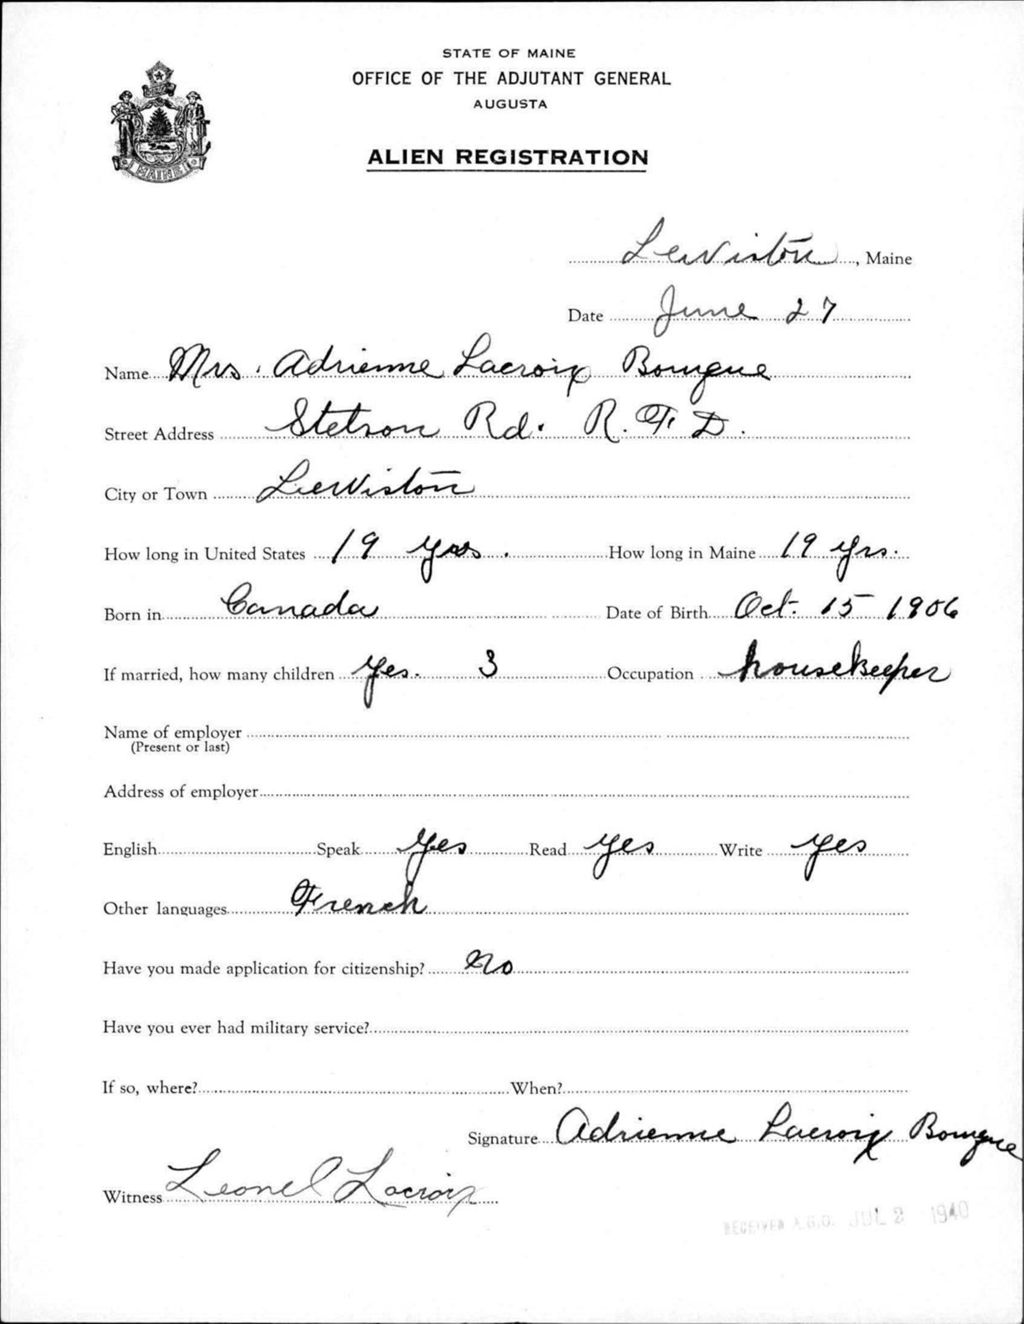 STATE OF MAINE
OFFICE OF THE ADJUTANT GENERAL
AUGUSTA
ALIEN REGISTRATION
Lewiston, Maine
Date June 27
Name Mrs. Adrienne Lacroix Bourque
Street Address Stetson Rd. R.F.D.
City or Town Lewiston
How long in United States 19 yrs. How long in Maine 19 yrs.
Born in Canada Date of Birth Oct. 15 1906
If married, how many children yes. 3 Occupation housekeeper
Name of employer
(Present or last)
Address of employer
English Speak yes Read yes Write yes
Other languages French
Have you made application for citizenship? No
Have you ever had military service?
If so, where? When?
Signature Adrienne Lacroix Bourque
Witness Leonel Lacroix
RECEIVED A.G.O. JUL 2 1940